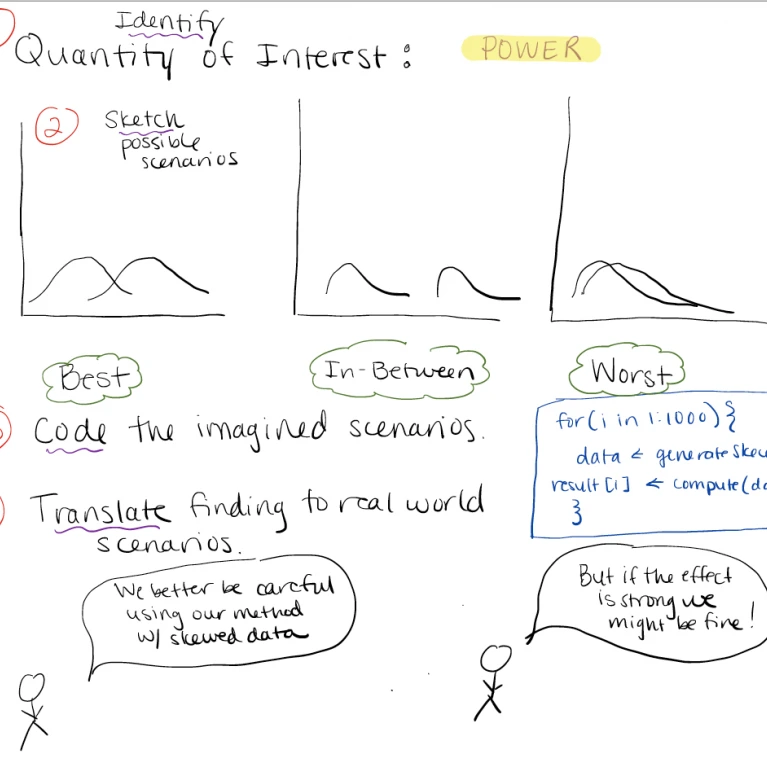 Identify
Quantity of Interest: POWER
2 Sketch
possible
scenarios
Best
In-Between
Worst
Code the imagined scenarios.
for(i in 1:1000){
data ←
result[i] ← compute(
}
Translate finding to real world
scenarios.
We better be careful
using our method
w/ skewed data
But if the effect
is strong we
might be fine!